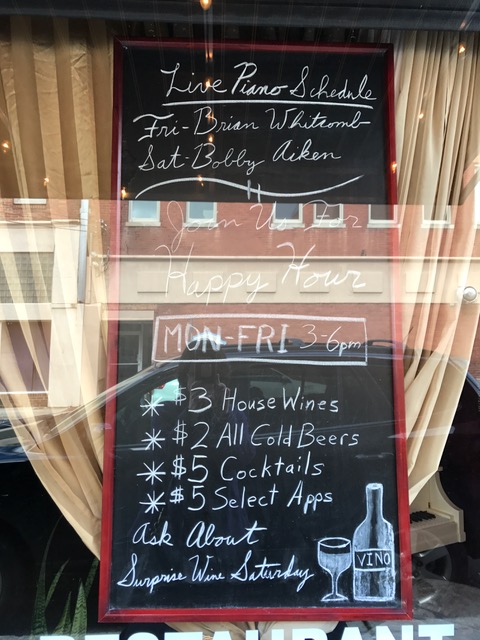 Live Piano Schedule
Fri-Brian Whitcomb
Sat-Bobby Aiken
Join Us For
Happy Hour
MON-FRI 3-6pm
* $3 House Wines
* $2 All Cold Beers
* $5 Cocktails
* $5 Select Apps
Ask About
Surprise Wine Saturday
VINO
RESTAURANT